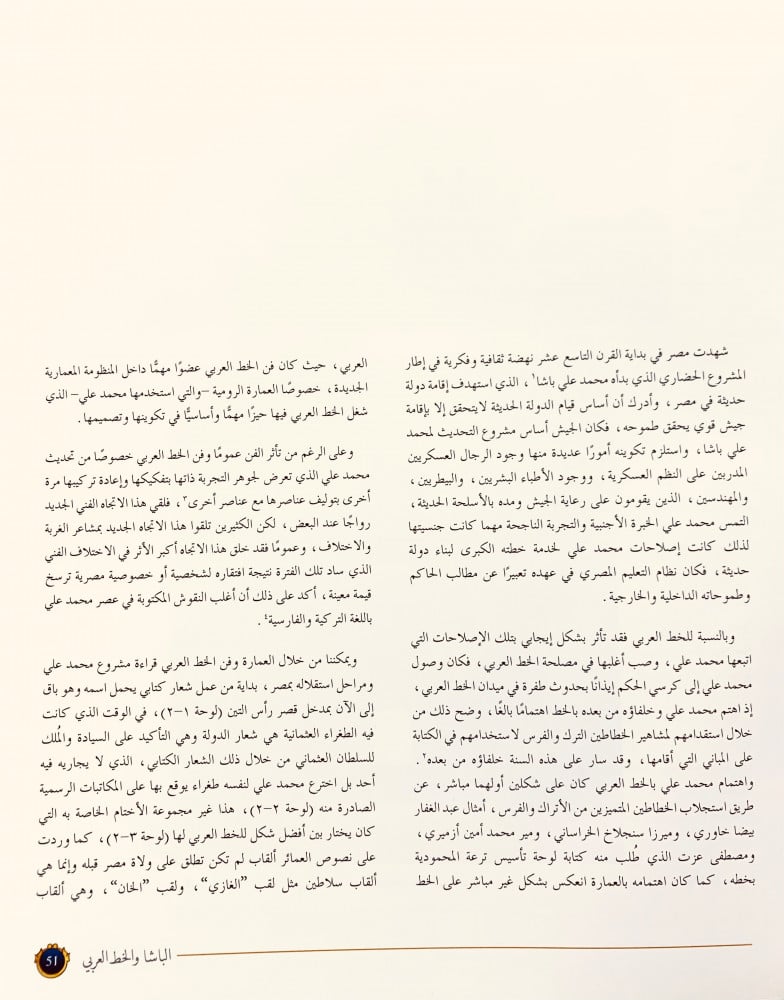 شهدت مصر في بداية القرن التاسع عشر نهضة ثقافية وفكرية في إطار
المشروع الحضاري الذي بدأه محمد علي باشا١، الذي استهدف إقامة دولة
حديثة في مصر، وأدرك أن أساس قيام الدولة الحديثة لايتحقق إلا بإقامة
جيش قوي يحقق طموحه، فكان الجيش أساس مشروع التحديث لمحمد
علي باشا، واستلزم تكوينه أمورًا عديدة منها وجود الرجال العسكريين
المدربين على النظم العسكرية، ووجود الأطباء البشريين، والبيطريين،
والمهندسين، الذين يقومون على رعاية الجيش ومده بالأسلحة الحديثة،
التمس محمد علي الخبرة الأجنبية والتجربة الناجحة مهما كانت جنسيتها
لذلك كانت إصلاحات محمد علي لخدمة خطته الكبرى لبناء دولة
حديثة، فكان نظام التعليم المصري في عهده تعبيرًا عن مطالب الحاكم
وطموحاته الداخلية والخارجية.
وبالنسبة للخط العربي فقد تأثر بشكل إيجابي بتلك الإصلاحات التي
اتبعها محمد علي، وصب أغلبها في مصلحة الخط العربي، فكان وصول
محمد علي إلى كرسي الحكم إيذانًا بحدوث طفرة في ميدان الخط العربي،
إذ اهتم محمد علي وخلفاؤه من بعده بالخط اهتمامًا بالغًا، وضح ذلك من
خلال استقدامهم لمشاهير الخطاطين الترك والفرس لاستخدامهم في الكتابة
على المباني التي أقامها، وقد سار على هذه السنة خلفاؤه من بعده٢.
واهتمام محمد علي بالخط العربي كان على شكلين أولهما مباشر، عن
طريق استجلاب الخطاطين المتميزين من الأتراك والفرس، أمثال عبد الغفار
بيضا خاوري، وميرزا سنجلاخ الخراساني، ومير محمد أمين أزميري،
ومصطفى عزت الذي طُلب منه كتابة لوحة تأسيس ترعة المحمودية
بخطه، كما كان اهتمامه بالعمارة انعكس بشكل غير مباشر على الخط
العربي، حيث كان فن الخط العربي عضوًا مهمًّا داخل المنظومة المعمارية
الجديدة، خصوصًا العمارة الرومية –والتي استخدمها محمد علي– الذي
شغل الخط العربي فيها حيزًا مهمًّا وأساسيًّا في تكوينها وتصميمها.
وعلى الرغم من تأثر الفن عمومًا وفن الخط العربي خصوصًا من تحديث
محمد علي الذي تعرض لجوهر التجربة ذاتها بتفكيكها وإعادة تركيبها مرة
أخرى بتوليف عناصرها مع عناصر أخرى٣، فلقي هذا الاتجاه الفني الجديد
رواجًا عند البعض، لكن الكثيرين تلقوا هذا الاتجاه الجديد بمشاعر الغربة
والاختلاف، وعمومًا فقد خلق هذا الاتجاه أكبر الأثر في الاختلاف الفني
الذي ساد تلك الفترة نتيجة افتقاره لشخصية أو خصوصية مصرية ترسخ
قيمة معينة، أكد على ذلك أن أغلب النقوش المكتوبة في عصر محمد علي
باللغة التركية والفارسية٤.
ويمكننا من خلال العمارة وفن الخط العربي قراءة مشروع محمد علي
ومراحل استقلاله بمصر، بداية من عمل شعار كتابي يحمل اسمه وهو باق
إلى الآن بمدخل قصر رأس التين (لوحة ١–٢)، في الوقت الذي كانت
فيه الطغراء العثمانية هي شعار الدولة وهي التأكيد على السيادة والمُلك
للسلطان العثماني من خلال ذلك الشعار الكتابي، الذي لا يجاريه فيه
أحد بل اخترع محمد علي لنفسه طغراء يوقع بها على المكاتبات الرسمية
الصادرة منه (لوحة ٢–٢)، هذا غير مجموعة الأختام الخاصة به التي
كان يختار بين أفضل شكل للخط العربي لها (لوحة ٣–٢)، كما وردت
على نصوص العمائر ألقاب لم تكن تطلق على ولاة مصر قبله وإنما هي
ألقاب سلاطين مثل لقب “الغازي”، ولقب “الخان”، وهي ألقاب
الباشا والخط العربي
51